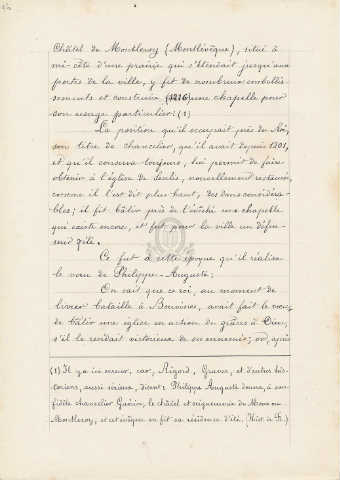 Châtel de Montleroy (Montlévêque), situé à
mi-côte d'une prairie qui s'étendait jusqu'aux
portes de la ville, y fit de nombreux embellis
sements et construire (1216) une chapelle pour
son usage particulier: (1)
La position qu'il occupait près du Roi,
son titre de chancelier, que il avait depuis 1201,
et qu'il conserva toujours, lui permit de faire
obtenir à l'église de Senlis, nouvellement restaurée,
comme il l'est dit plus haut, des dons considéra-
bles; il fit bâtir près de l'évêché une chapelle
qui existe encore, et fut pour la ville un défen-
seur zélé.
Ce fut à cette époque qu'il réalisa
le vœu de Philippe-Auguste:
On sait que ce roi, au moment de
livrer bataille à Bouvines, avait fait le vœu
de bâtir une église en action de grâces à Dieu,
s'il le rendait victorieux de ses ennemis; or, après
(1) Il y a ici erreur, car, Rigord, Graves, et d'autres his-
toriens, aussi sérieux, disent: Philippe Auguste donna, à son
fidèle chancelier Guérin, le châtel et seigneurie du Mont ou
Montleroy, et cet évêque en fit sa résidence d'été. (Hist. de